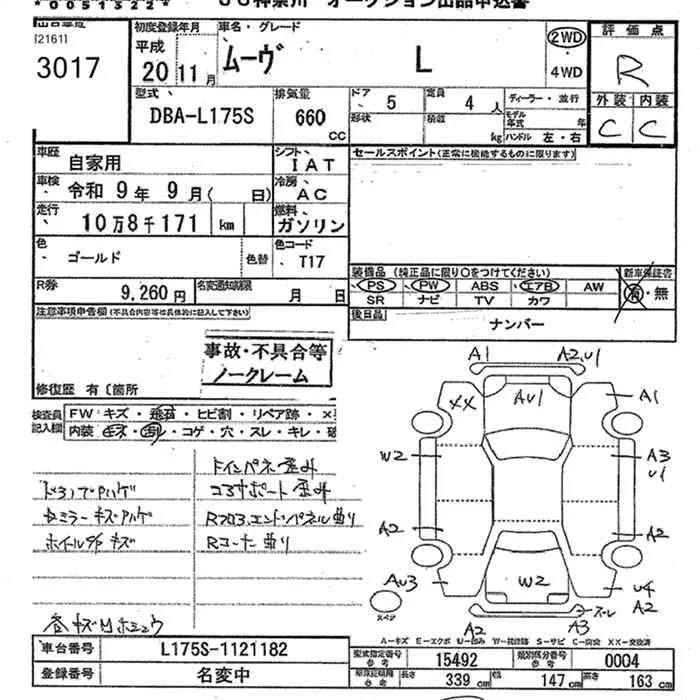 JU神奈川 オークション出品申込書
[2161]
3017
初度登録年月
平成
20年11月
車名・グレード
ムーヴ L
2WD
・
4WD
評価点
R
外装 内装
C C
型式
DBA-L175S
排気量
660
CC
ドア 5
定員 4人
形状
積載 kg
ディーラー・並行
モデル年式 年
ハンドル 左・右
車歴 自家用
シフト IAT
車検 令和 9年 9月( 日)
冷房 AC
走行 10万8千171 km
燃料 ガソリン
色 ゴールド
色替
色コード T17
R券 9,260円
名変通知期限 月 日
セールスポイント(正常に機能するものに限ります)
装備品 (純正品に限り○をつけてください)
PS PW ABS エアB AW
SR ナビ TV カワ
新車保証書
有・無
後日品
ナンバー
注意事項申告欄(不具合内容等は具体的に記入して下さい)
事故・不具合等
ノークレーム
修復歴 有〔箇所
検査員
記入欄
FW キズ・飛石・ヒビ割・リペア跡・×
内装 キズ・汚レ・コゲ・穴・スレ・キレ・破
ドインパネ歪み
コアサポート歪み
セミラーキズアハゲ
ホイール4本キズ
Rフロア、エンドパネル曲り
Rコーナー曲り
A1
A2,U1
XX
AU1
A1
W2
A3
U1
A2
A2
AU3
W2
U4
A2
スペア
A2
A3
スレ
A-キズ E-エクボ U-凹み W-補修跡 S-サビ C-腐食 XX-交換済
車台番号 L175S-1121182
登録番号 名変中
型式指定番号 参考 15492
類別区分番号 参考 0004
参考 長さ 339 cm 幅 147 cm 高さ 163 cm